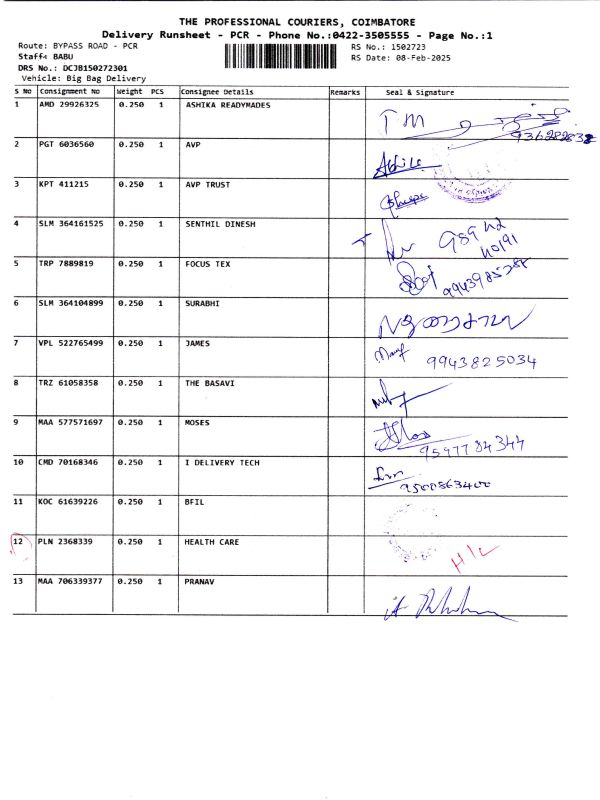 THE PROFESSIONAL COURIERS, COIMBATORE
Delivery Runsheet - PCR - Phone No.:0422-3505555 - Page No.:1
Route: BYPASS ROAD - PCR
RS No.: 1502723
Staff: BABU
RS Date: 08-Feb-2025
DRS No.: DCJB150272301
Vehicle: Big Bag Delivery
S No Consignment No Weight PCS Consignee Details Remarks Seal & Signature
1 AMD 29926325 0.250 1 ASHIKA READYMADES TM
2 PGT 6036560 0.250 1 AVP
3 KPT 411215 0.250 1 AVP TRUST
4 SLM 364161525 0.250 1 SENTHIL DINESH
5 TRP 7889819 0.250 1 FOCUS TEX
6 SLM 364104899 0.250 1 SURABHI
7 VPL 522765499 0.250 1 JAMES 9943825034
8 TRZ 61058358 0.250 1 THE BASAVI
9 MAA 577571697 0.250 1 MOSES 9597784344
10 CMD 70168346 0.250 1 I DELIVERY TECH 9500863400
11 KOC 61639226 0.250 1 BFIL
12 PLN 2368339 0.250 1 HEALTH CARE H/C
13 MAA 706339377 0.250 1 PRANAV